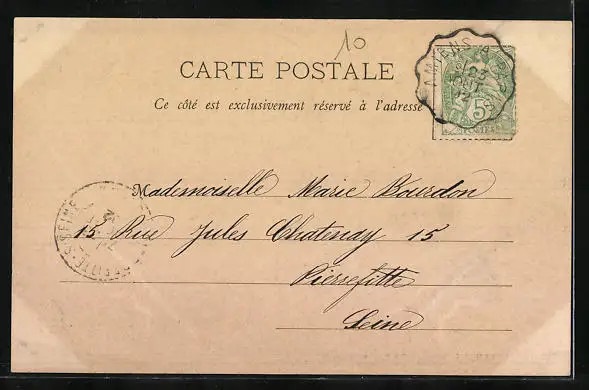 10
CARTE POSTALE
Ce côté est exclusivement réservé à l'adresse
AMIENS A
23
5
Mademoiselle Marie Bourdon
15 Rue Jules Chatenay 15
Pierrefitte
Seine
SEINE